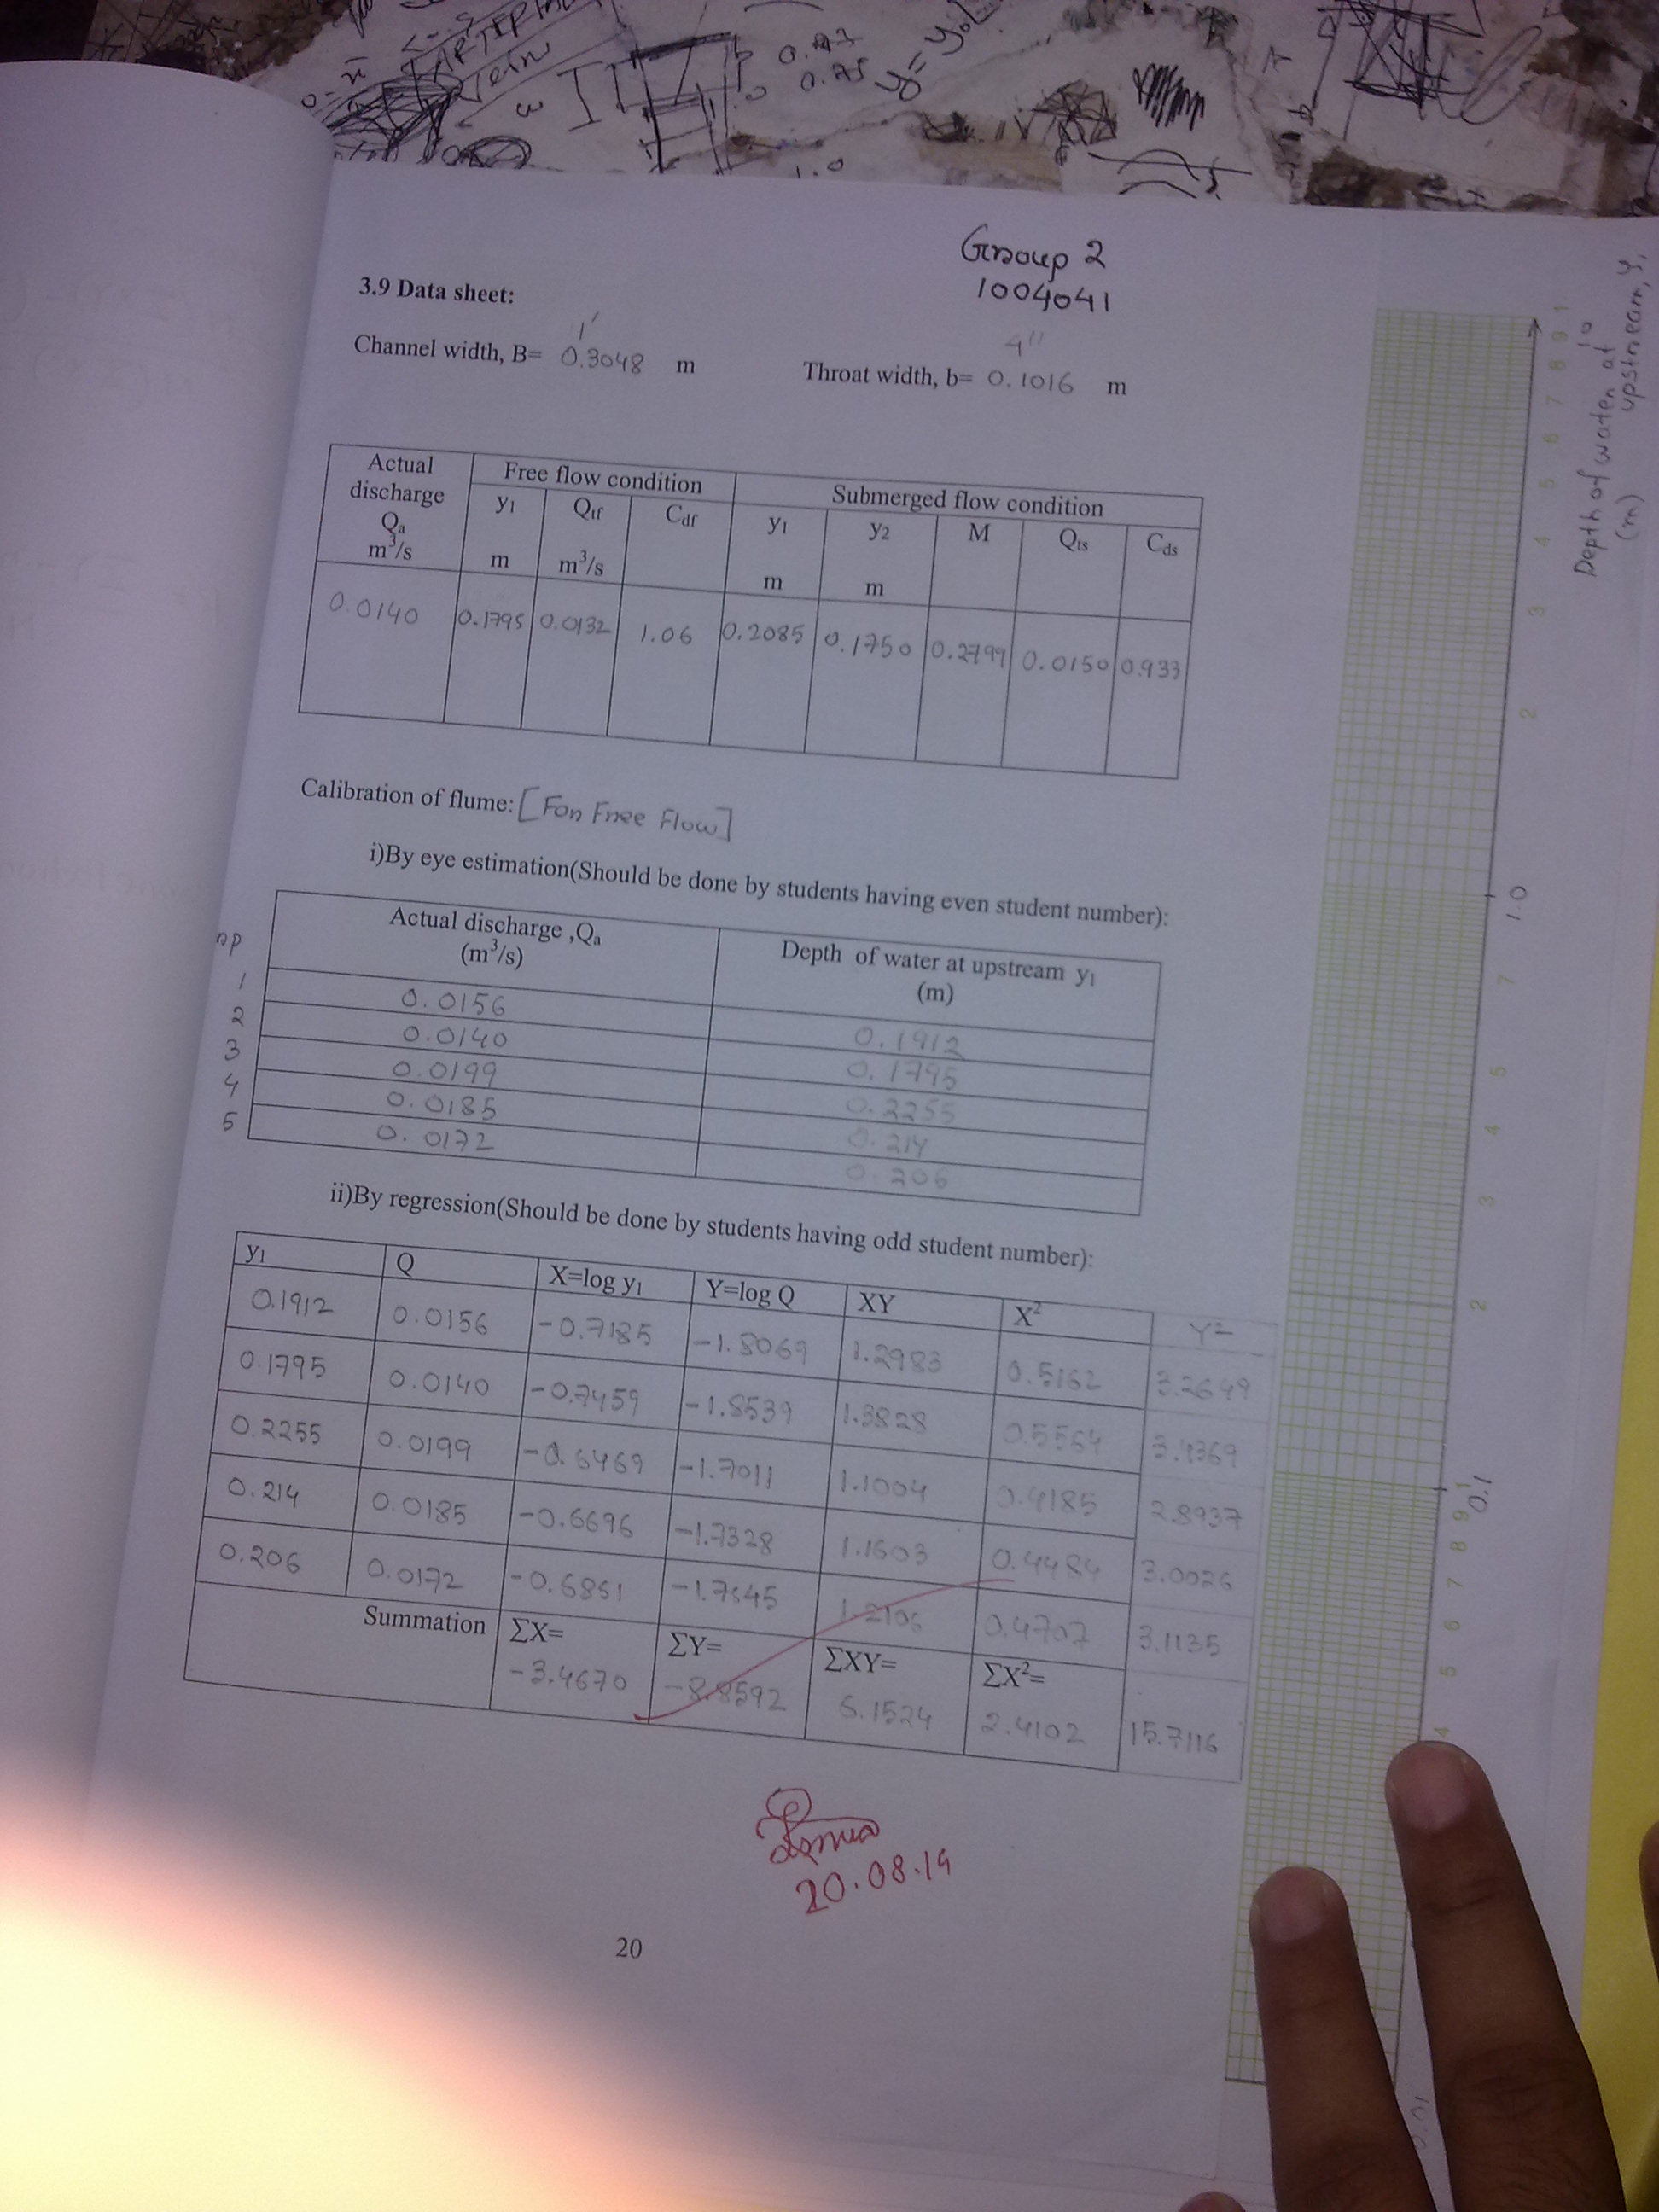 ARTERIAL
vein
0.75
1.0
Group 2
1004041
3.9 Data sheet:
1'
4"
Channel width, B= 0.3048 m Throat width, b= 0.1016 m
Actual discharge Qa m³/s Free flow condition Submerged flow condition
y1 m Qtf m³/s Cdf y1 m y2 m M Qts Cds
0.0140 0.1795 0.0132 1.06 0.2085 0.1750 0.2799 0.0150 0.933
Calibration of flume: [For Free Flow]
i)By eye estimation(Should be done by students having even student number):
Actual discharge ,Qa (m³/s) Depth of water at upstream y1 (m)
1 0.0156 0.1912
2 0.0140 0.1795
3 0.0199 0.2255
4 0.0185 0.214
5 0.0172 0.206
ii)By regression(Should be done by students having odd student number):
y1 Q X=log y1 Y=log Q XY X² Y²
0.1912 0.0156 -0.7185 -1.8069 1.2983 0.5162 3.2649
0.1795 0.0140 -0.7459 -1.8539 1.3828 0.5564 3.4369
0.2255 0.0199 -0.6469 -1.7011 1.1004 0.4185 2.8937
0.214 0.0185 -0.6696 -1.7328 1.1603 0.4484 3.0026
0.206 0.0172 -0.6861 -1.7645 1.2106 0.4707 3.1135
Summation ΣX= -3.4670 ΣY= -8.8592 ΣXY= 6.1524 ΣX²= 2.4102 15.7116
20.08.14
20
Depth of water at upstream, Y1
(m)
10
1.0
0.1
0.01